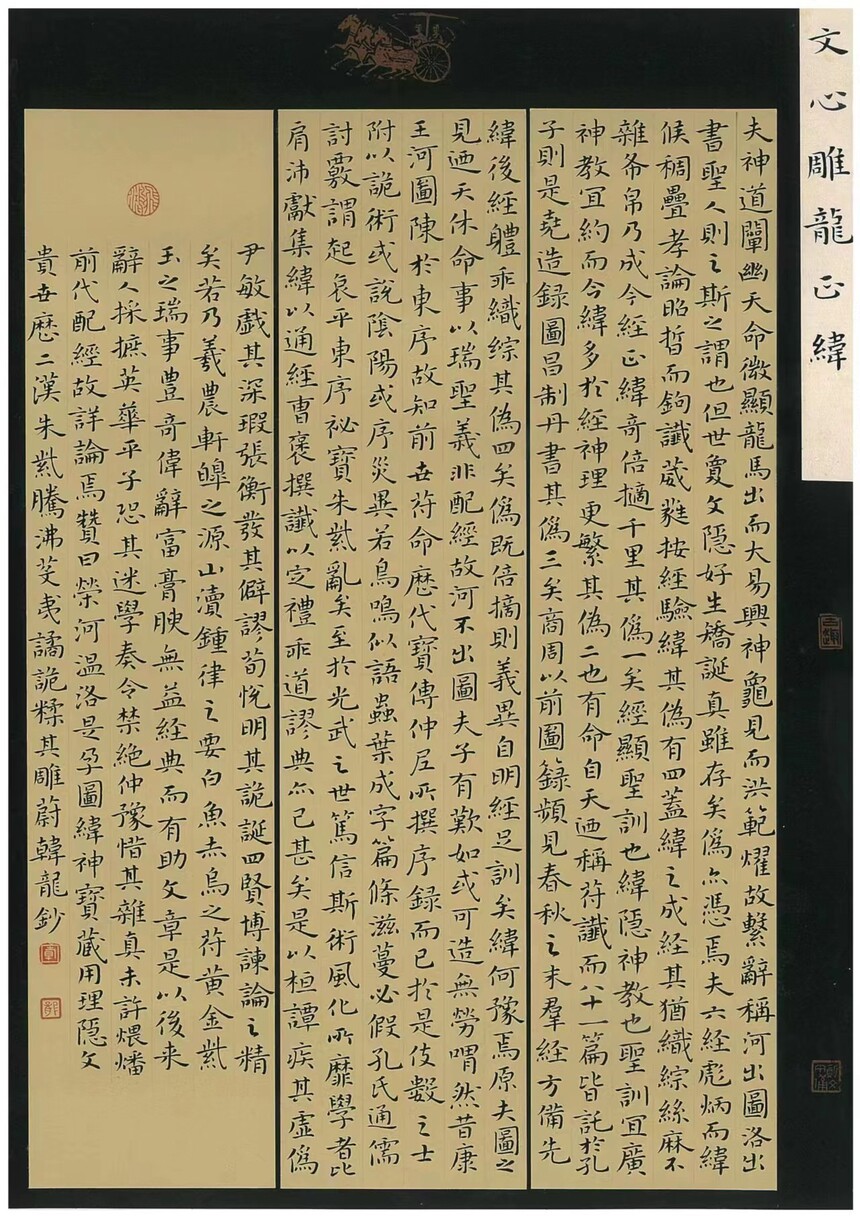 文心雕龍正緯
夫神道闡幽天命微顯龍馬出而大易興神龜見而洪範燿故繫辭稱河出圖洛出
書聖人則之斯之謂也但世敻文隱好生矯誕真雖存矣僞亦憑焉夫六經彪炳而緯
候稠疊孝論昭晳而鉤讖葳蕤按經驗緯其僞有四蓋緯之成經其猶織綜絲麻不
雜布帛乃成今經正緯奇倍擿千里其僞一矣經顯聖訓也緯隱神教也聖訓宜廣
神教宜約而今緯多於經神理更繁其僞二也有命自天迺稱符讖而八十一篇皆託於孔
子則是堯造録圖昌制丹書其僞三矣商周以前圖籙頻見春秋之末羣經方備先
緯後經軆乖織综其僞四矣僞既倍摘則義異自明經足訓矣緯何豫焉原夫圖之
見迺天休命事以瑞聖義非配經故河不出圖夫子有歎如或可造無勞喟然昔康
王河圖陳於東序故知前世符命歷代寶傳仲尼所撰序録而已於是伎數之士
附以詭術或說陰陽或序災異若鳥鳴似語蟲葉成字篇條滋蔓必假孔氏通儒
討覈謂起哀平東序祕寶朱紫亂矣至於光武之世篤信斯術風化所靡學者比
肩沛獻集緯以通經曹褒撰讖以定禮乖道謬典亦已甚矣是以桓譚疾其虛僞
尹敏戲其深瑕張衡發其僻謬荀悅明其詭誕四賢博諫論之精
矣若乃羲農軒皥之源山瀆鍾律之要白魚赤烏之符黃金紫
玉之瑞事豐奇偉辭富膏腴無益經典而有助文章是以後来
辭人採摭英華平子恐其迷學奏令禁絶仲豫惜其雜真未許煨燔
前代配經故詳論焉贊曰榮河温洛是孕圖緯神寶藏用理隱文
貴世歷二漢朱紫騰沸芟夷譎詭糅其雕蔚韓龍鈔